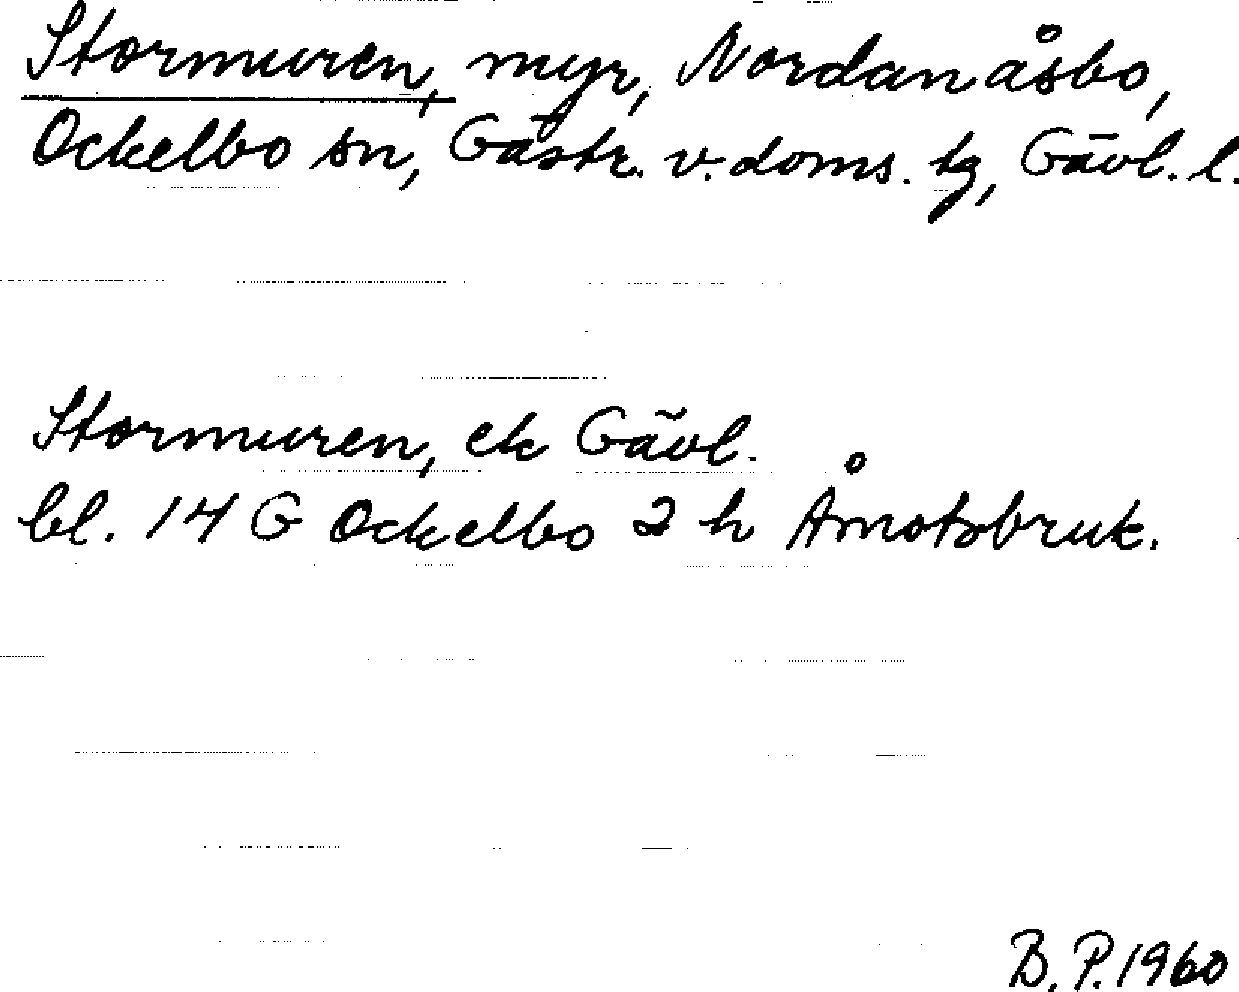 Stormuren, myr, Nordanåsbo,
Ockelbo sn, Gästr. v. doms. tg, Gävl. l.
Stormuren, ek Gävl.
bl. 14 G Ockelbo 2 h Åmotsbruk.
B. P. 1960